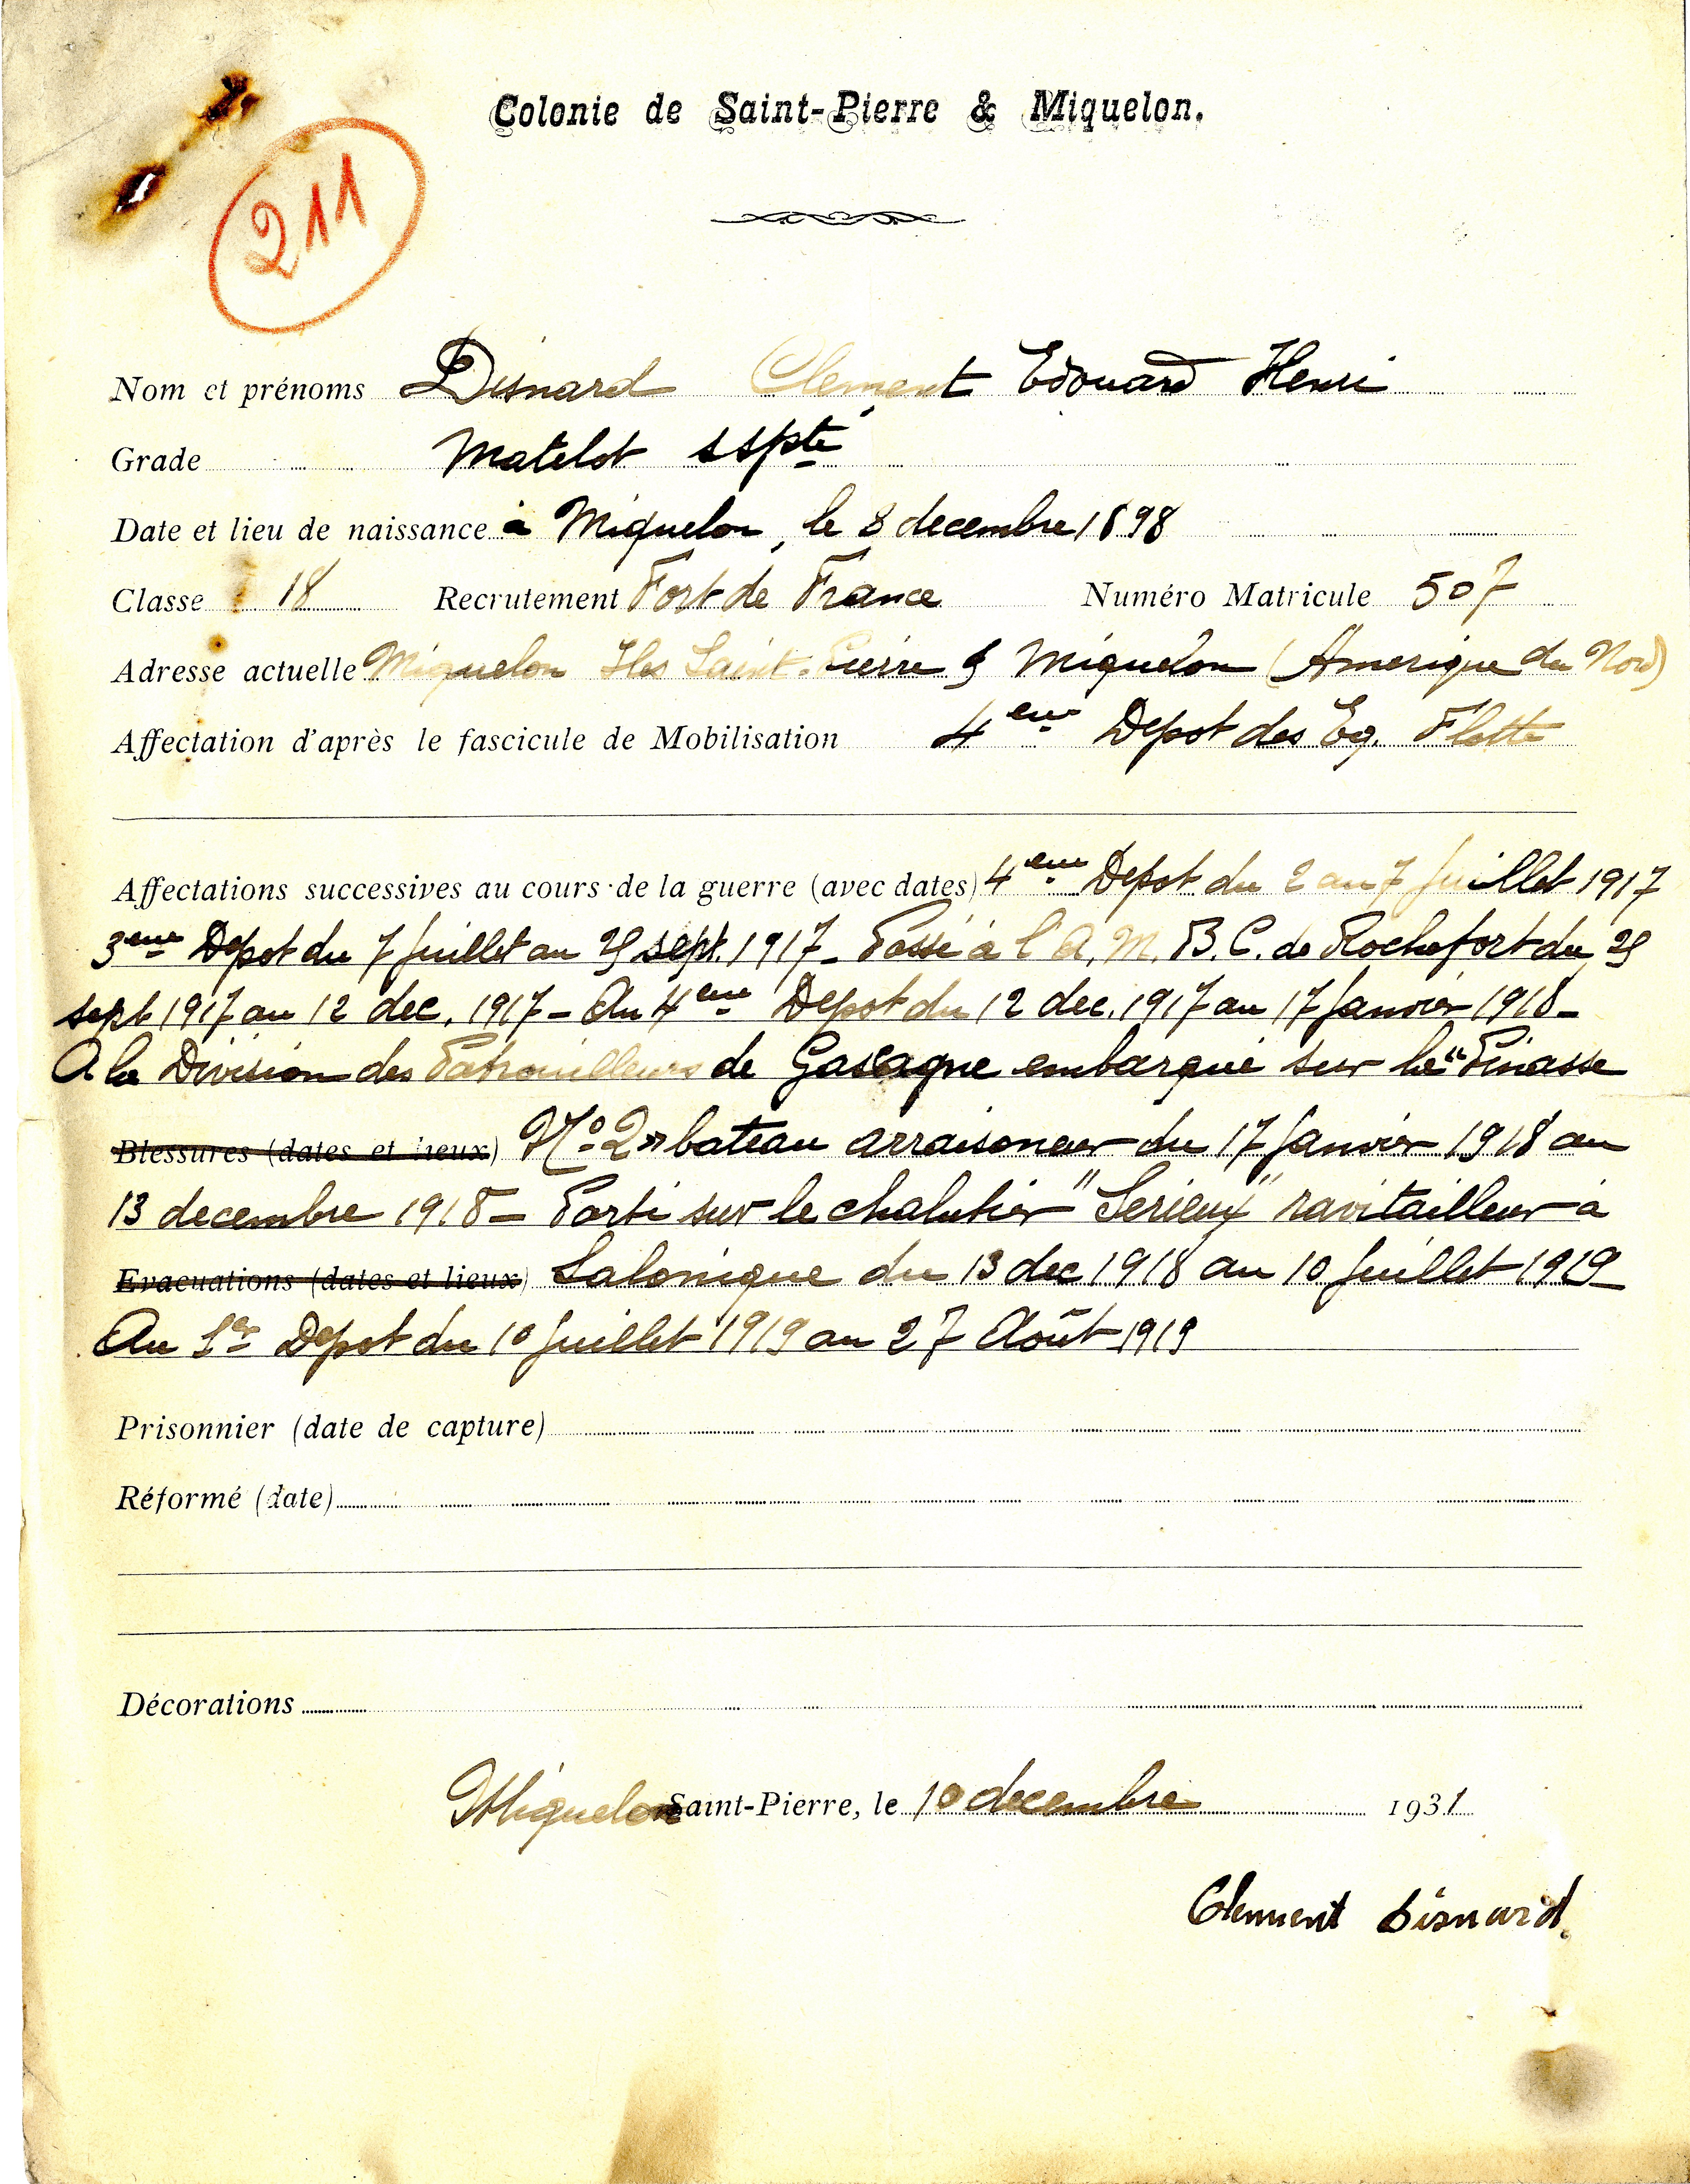 Colonie de Saint-Pierre & Miquelon.
211
Nom et prénoms Disnard Clement Edouard Henri
Grade Matelot sspte
Date et lieu de naissance à Miquelon, le 8 decembre 1898
Classe 18 Recrutement Fort de France Numéro Matricule 507
Adresse actuelle Miquelon Iles Saint-Pierre & Miquelon (Amerique du Nord)
Affectation d'après le fascicule de Mobilisation 4eme Depot des Eq. Flotte
Affectations successives au cours de la guerre (avec dates) 4eme Depot du 2 au 7 Juillet 1917
3eme Depot du 7 Juillet au 29 sept. 1917 - Passé à l'A. M. B. C. de Rochefort du 29
sept 1917 au 12 dec. 1917 - Au 4eme Depot du 12 dec. 1917 au 17 Janvier 1918 -
A la Division des Patrouilleurs de Gascogne embarqué sur la "Pinasse
Blessures (dates et lieux) No 2" bateau arraisoneur du 17 Janvier 1918 au
13 decembre 1918 - Parti sur le chalutier "Serieux" ravitailleur à
Evacuations (dates et lieux) Salonique du 13 dec 1918 au 10 Juillet 1919
Au 1er Depot du 10 Juillet 1919 au 27 Août 1919
Prisonnier (date de capture)
Réformé (date)
Décorations
Miquelon Saint-Pierre, le 10 decembre 1931
Clement Disnard.